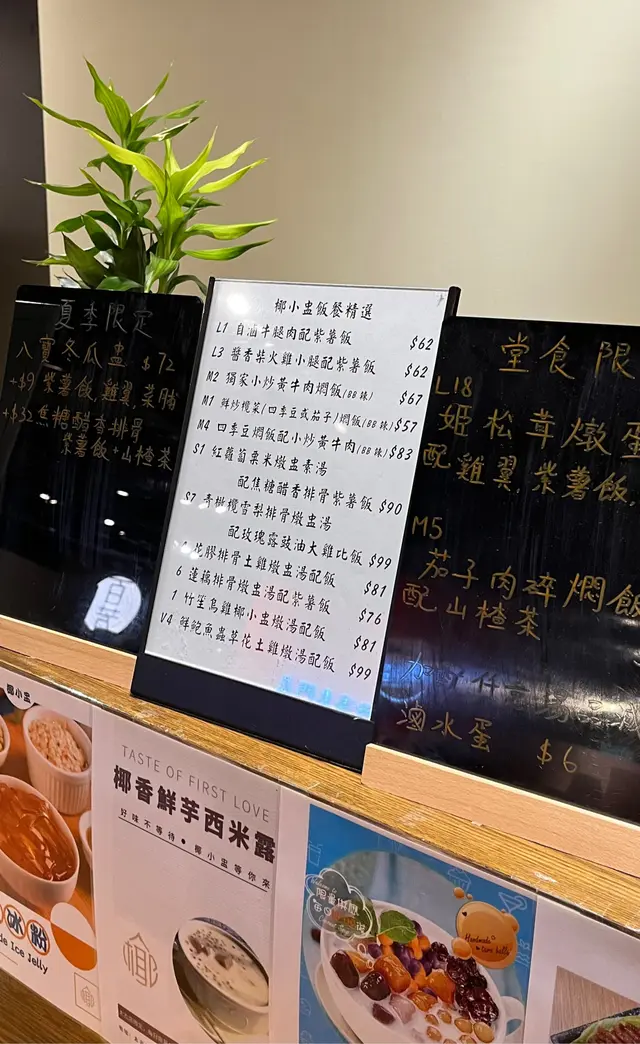 夏季限定
八寶冬瓜盅 $72
+$9 紫薯飯,雞翼,菜脯
+$32 焦糖醋香排骨
紫薯飯+山楂茶
椰小盅飯餐精選
L1 自滷牛腿肉配紫薯飯 $62
L3 醬香柴火雞小腿配紫薯飯 $62
M2 獨家小炒黃牛肉燜飯(BB辣) $67
M1 鮮炒欖菜(四季豆或茄子)燜飯(BB辣) $57
M4 四季豆燜飯配小炒黃牛肉(BB辣) $83
S1 紅蘿蔔粟米燉盅素湯
配焦糖醋香排骨紫薯飯 $90
S7 青橄欖雪梨排骨燉盅湯
配玫瑰露豉油大雞比飯 $99
花膠排骨土雞燉盅湯配飯 $81
6 蓮藕排骨燉盅湯配紫薯飯 $76
1 竹笙烏雞椰小盅燉湯配飯 $81
V4 鮮鮑魚蟲草花土雞燉湯配飯 $99
堂食限
L18
姬松茸燉
配雞翼,紫薯飯,
M5
茄子肉碎燜飯
配山楂茶
滷水蛋 $6
椰小盅
冰粉
Ice Jelly
TASTE OF FIRST LOVE
椰香鮮芋西米露
好味不等待●椰小盅等你來
Handmade
taro balls